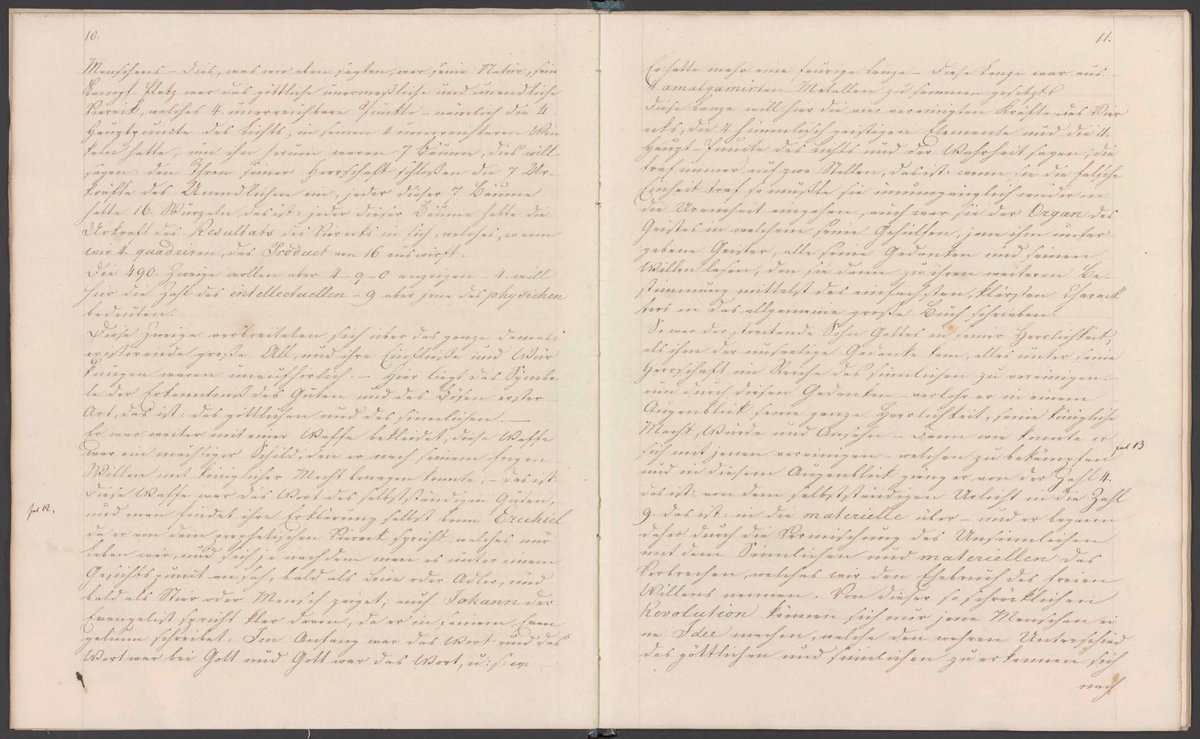 10.
Menschens – dies, was wir eben sagten, war seine Natur, sein
Haupt Platz war das göttliche unermeßliche und unendliche
Viereck, welches 4 unerreichbare Punkte – nämlich die 4
Hauptpuncte des Lichts, in seinen 4 Win
keln hatte; um ihn herum waren 7 Bäume, dies will
sagen: den Thron seiner Herrschaft schloßen die 7 Ur
kräfte des Unendlichen ein, jeder dieser 7 Bäume
hatte 16 Wurzeln, das ist: jeder dieser Bäume hatte die
Urkraft des Resultats des Vierecks in sich, welches, wenn
wir 4 quadriren, das Product von 16 auswirft.
Die 490. Zweige wollen aber 4–9–0 anzeigen – 4 will
hier die Zahl des intellectuellen – 9 aber jene des physischen
bedeuten.
Diese Zweige verbreiteten sich über das ganze damals
existirende große All, und ihre Einflüsse und Wür
kungen waren unaufhörlich. – Hier liegt das Symbo
le der Erkenntniß des Guten und des Bösen erster
Art, das ist: des göttlichen und des sinnlichen. —
Er war weiter mit einer Waffe bekleidet, diese Waffe
war ein mächtiger Schild, den er nach seinem freyen
Willen mit königlicher Macht bewegen konnte, – das ist:
diese Waffe war das Wort des selbstständigen Guten,
und man findet ihre Erklärung selbst beym Ezechiel
da er von dem prophetischen Viereck spricht, welches
eben war, und sich, je nachdem man es unter einem
Gesichtspunct an sah, bald als Löwe oder Adler, und
bald als Stier oder Mensch zeiget; auch Johann der
Evangelist spricht klar davon, da er in seinem Evan
gelium schreibet: Im Anfang war das Wort und das
Wort war bei Gott und Gott war das Wort, u: s: w:
11.
Er hatte mehr eine feurige Lanze – diese Lanze war aus
4 amalgamirten Metallen zusammen gesetzt.
Diese Lanze will hier die vier vereinigten Kräfte des Vier
ecks, die 4 himmlisch geistigen Elemente und die 4.
Haupt-Puncte des Lichts und der Wahrheit sagen; sie
traf immer auf zwo Stellen, das ist: wenn sie die falsche
Einheit traf so mußte sie unumgänglich wieder in
die Ureinheit eingehen, auch war sie der Organ des
Geistes in welchem seine Gehülfen, jene ihm unter
gebene Geister, alle seine Gedanken und seinen
Willen lasen, den sie dann zu ihrer weiteren Be
stimmung mittelst des einfachsten, klarsten Charack
ters in das allgemeine große Buch schrieben.
So war der streitende Sohn Gottes in seiner Herrlichkeit,
als ihm der unseelige Gedanke kam, alles unter seine
Herrschaft im Reiche des sinnlichen zu vereinigen. –
nun durch diesen Gedanken – verlohr er in einem
Augenblick seine ganze Herrlichkeit, seine königliche
Macht, Würde und Ansehn – denn wie konnte er
sich mit jenen vereinigen – welchen zu bekämpfen
und in diesem Augenblick gieng er von der Zahl 4.
das ist: von dem selbstständigen Urlicht in die Zahl
9. das ist: in die materielle über – und er begann
daher durch die Vermischung des Unsinnlichen
mit dem Sinnlichen und materiellen das
Verbrechen, welches wir den Ehebruch des freien
Willens nennen. Von dieser so schröcklichen
Revolution können sich nur jene Menschen ei
ne Idee machen, welche den wahren Unterschied
des göttlichen und sinnlichen zu erkennen sich
nach